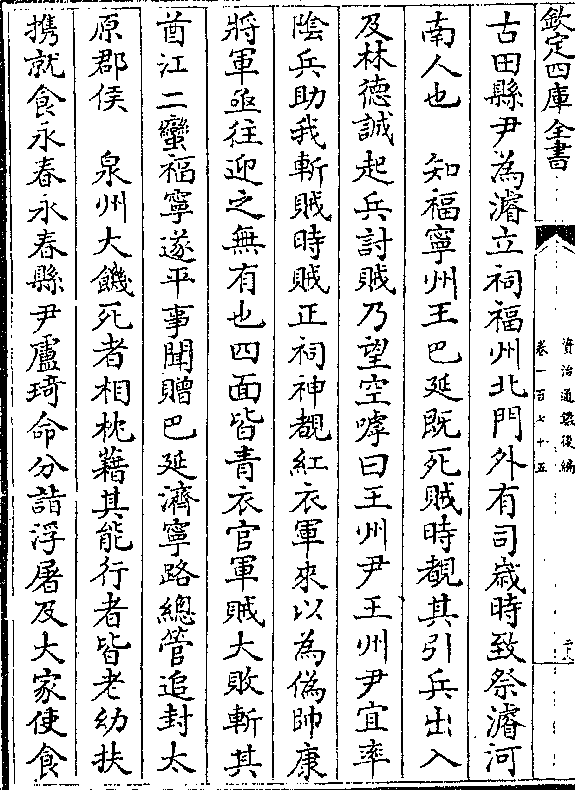 欽定四庫全書
資治通鑑後編
卷一百七十五
古田縣尹為濬立祠福州北門外有司歳時致祭濬河
南人也　知福寧州王巴延既死賊時覩其引兵出入
及林德誠起兵討賊乃望空嘑曰王州尹王州尹宜率
陰兵助我斬賊時賊正祠神覩紅衣軍來以為偽帥康
將軍亟往迎之無有也四面皆青衣官軍賊大敗斬其
酋江二蠻福寧遂平事聞贈巴延濟寧路總管追封太
原郡侯　泉州大饑死者相枕藉其能行者皆老幼扶
携就食永春永春縣尹盧琦命分詣浮屠及大家使食